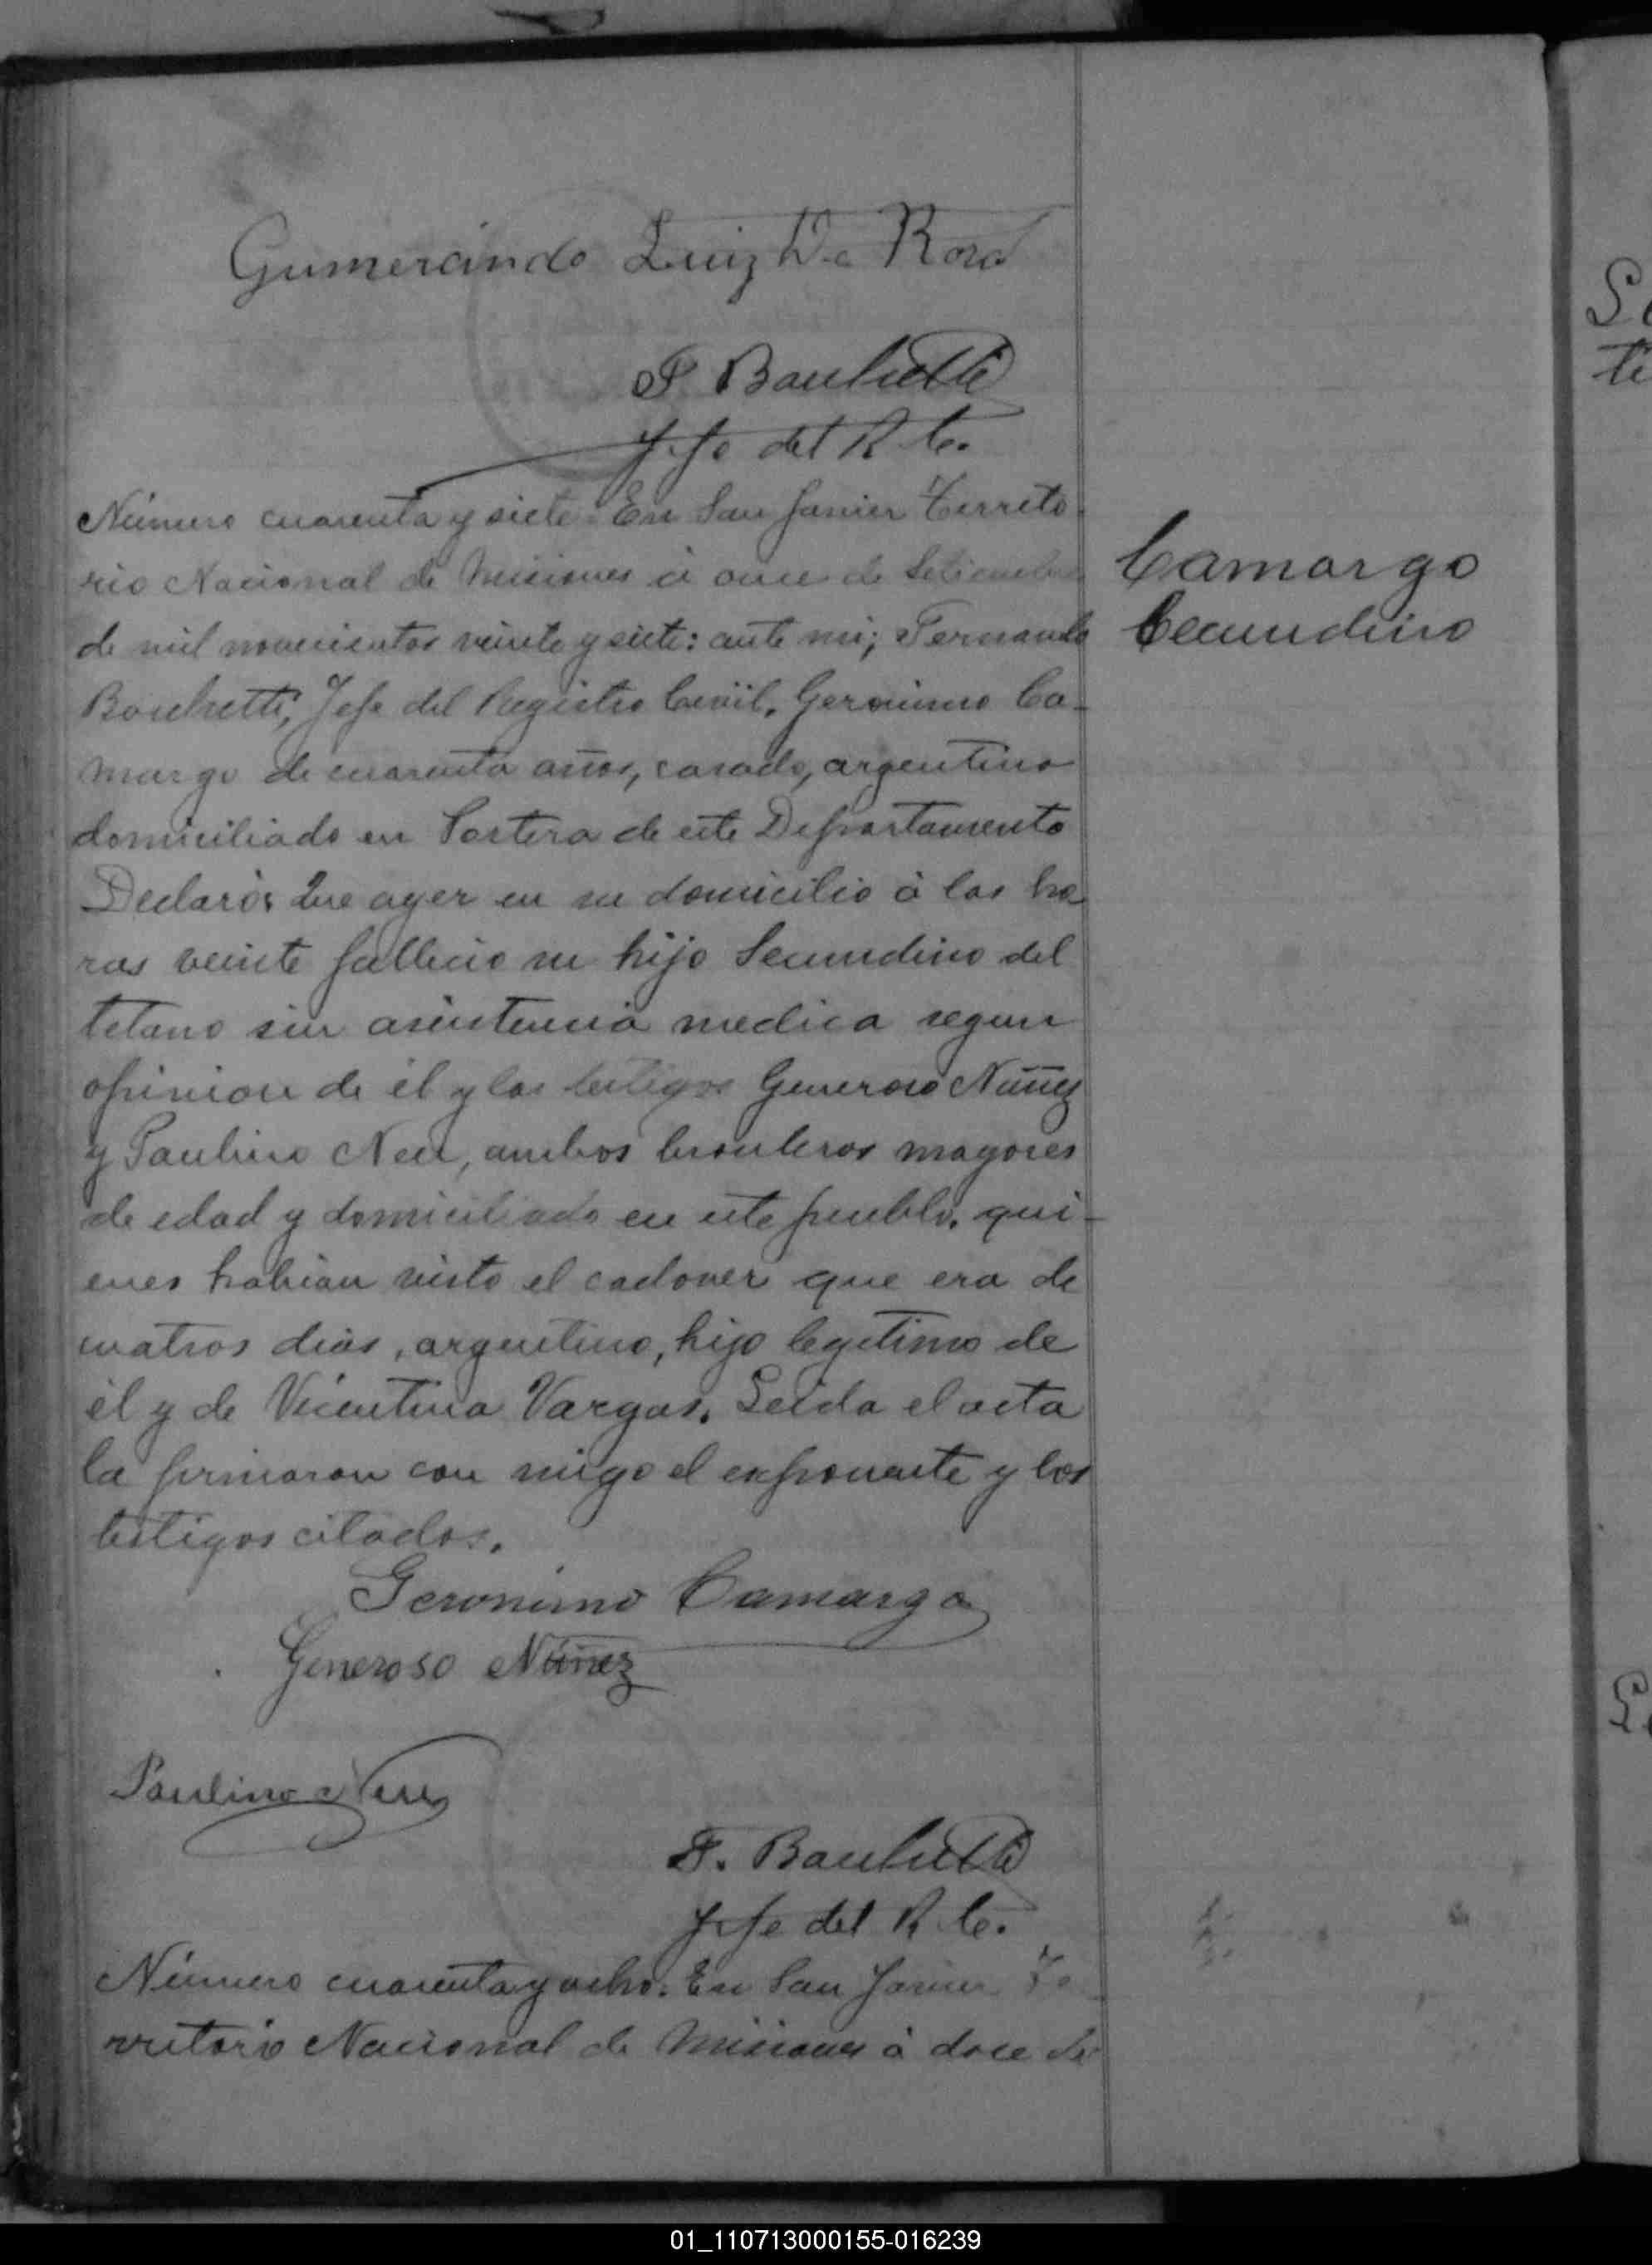 Gumercindo Luiz De Rosa
F Bouchetti
Jefe del R C.
Número cuarenta y siete. En San Javier Territo-
rio Nacional de Misiones á once de Setiembre
de mil novecientos veinte y siete: ante mi; Fernando
Bouchetti, Jefe del Registro Civil, Geronimo Ca-
margo de cuarenta años, casado, argentino
domiciliado en Portera de este Departamento
Declaró: Que ayer en su domicilio á las ho
ras veinte fallecio su hijo Secundino del
tetano sin asistencia medica segun
opinion de él y los testigos Generoso Núñez
y Paulino Neu, ambos brasileros mayores
de edad y domiciliado en este pueblo, qui-
enes habian visto el cadaver que era de
cuatros dias, argentino, hijo legitimo de
él y de Vicentina Vargas. Leida el acta
la firmaron con migo el exponente y los
testigos citados.
Geronimo Camargo
Generoso Núñez
Paulino Neu
F. Bouchetti
Jefe del R C.
Número cuarenta y ocho. En San Javier Te
rritorio Nacional de Misiones á doce de
Camargo
Cecundino
01_110713000155-016239